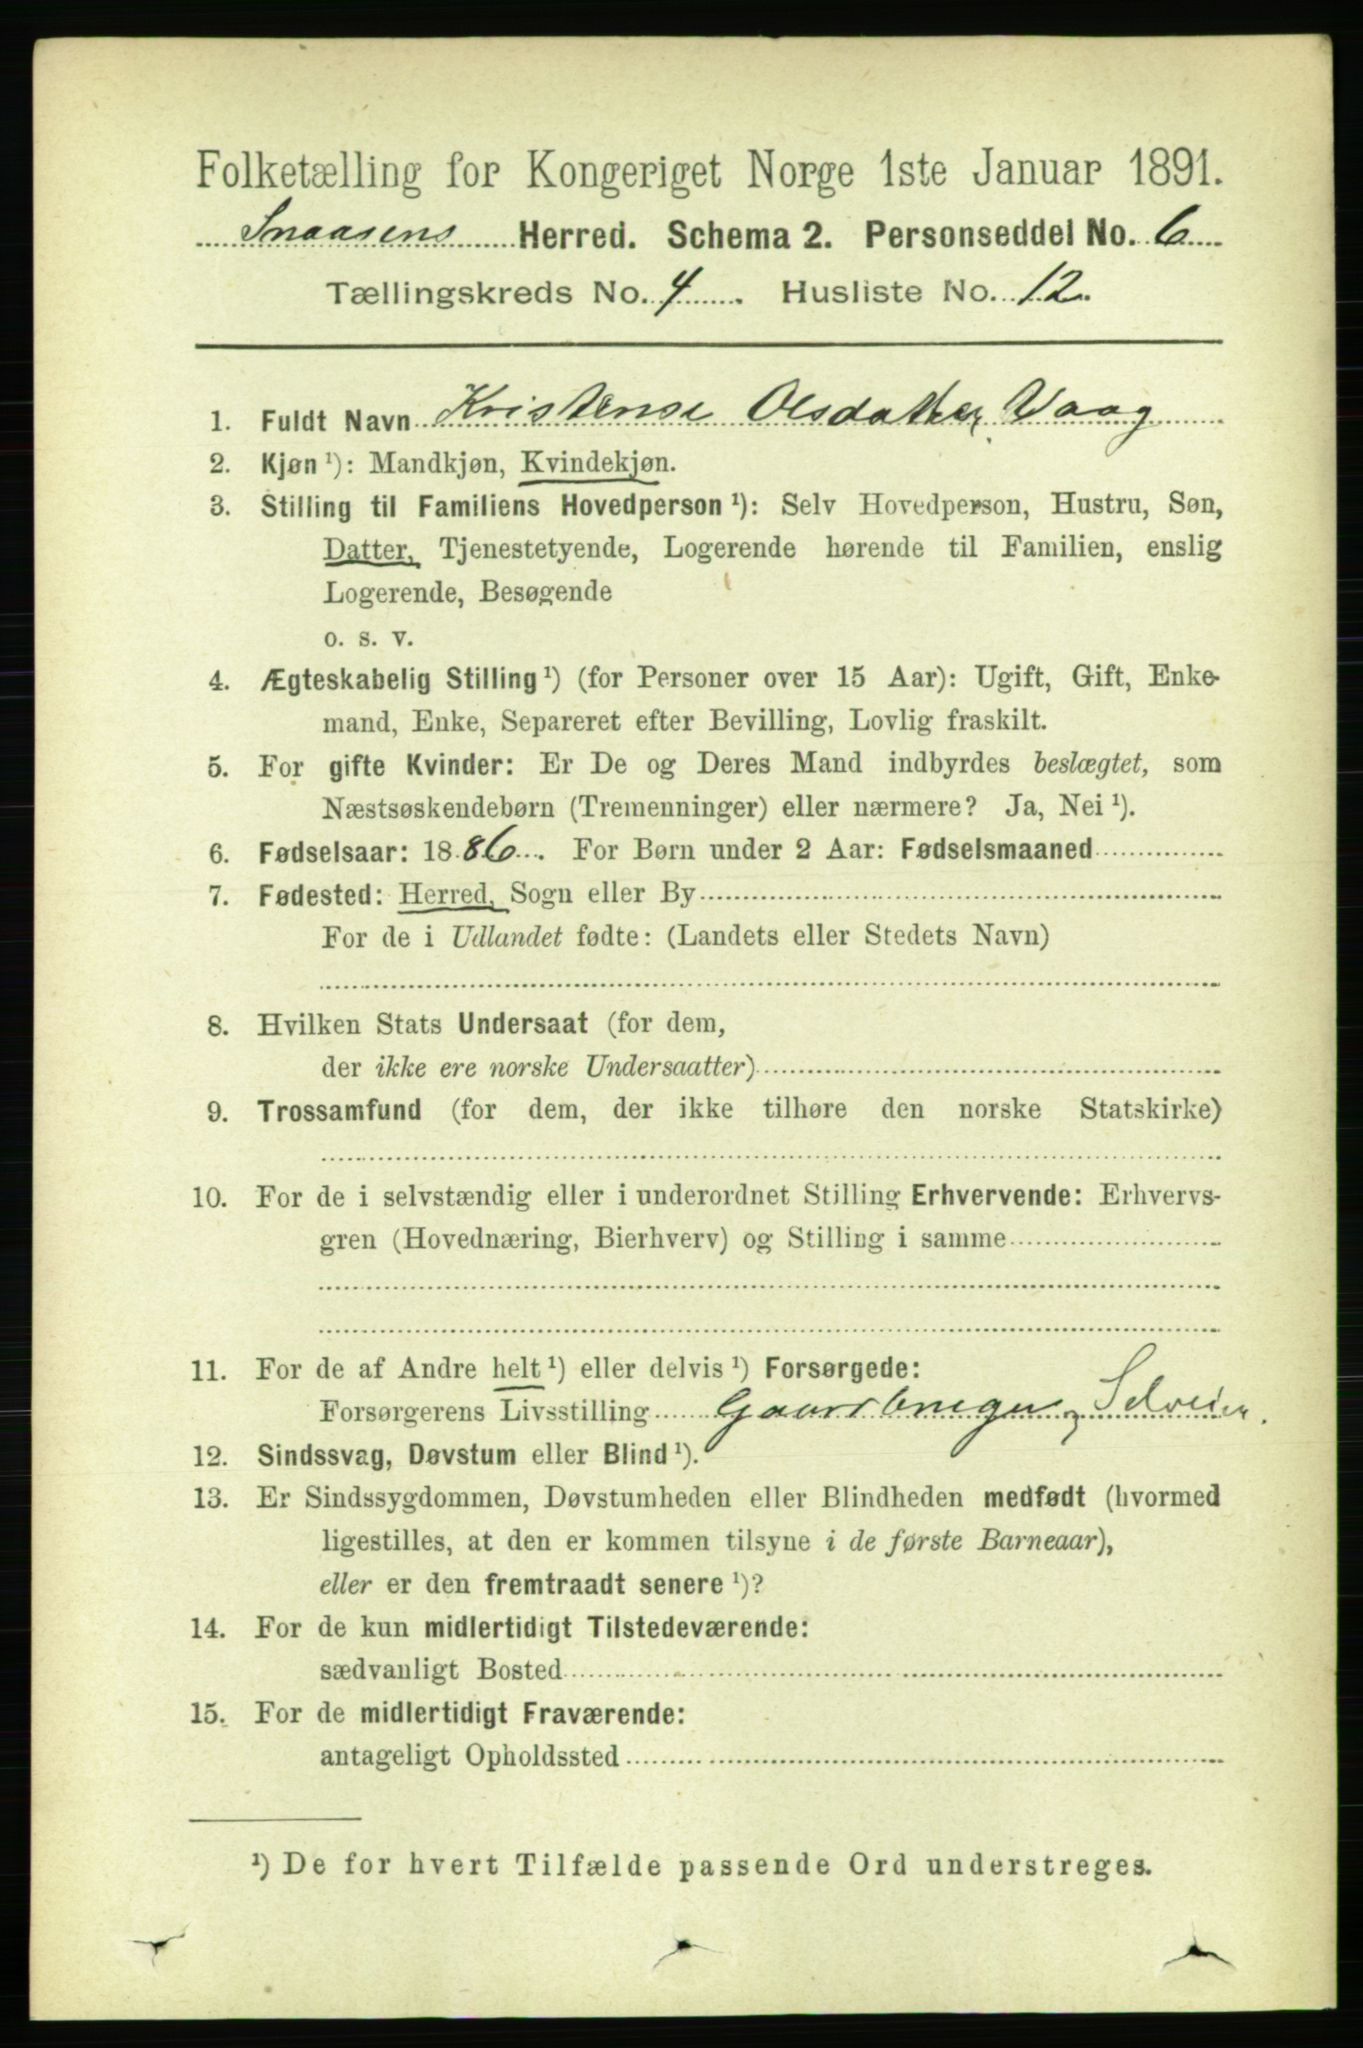 Folketælling for Kongeriget Norge 1ste Januar 1891.
Snaasens Herred. Schema 2. Personseddel No. 6
Tællingskreds No. 4. Husliste No. 12.
1. Fuldt Navn Kristense Olsdatter Vaag
2. Kjøn ¹): Mandkjøn, Kvindekjøn.
3. Stilling til Familiens Hovedperson ¹): Selv Hovedperson, Hustru, Søn,
Datter, Tjenestetyende, Logerende hørende til Familien, enslig
Logerende, Besøgende
o. s. v.
4. Ægteskabelig Stilling ¹) (for Personer over 15 Aar): Ugift, Gift, Enke-
mand, Enke, Separeret efter Bevilling, Lovlig fraskilt.
5. For gifte Kvinder: Er De og Deres Mand indbyrdes beslægtet, som
Næstsøskendebørn (Tremenninger) eller nærmere? Ja, Nei ¹).
6. Fødselsaar: 1886. For Børn under 2 Aar: Fødselsmaaned
7. Fødested: Herred, Sogn eller By
For de i Udlandet fødte: (Landets eller Stedets Navn)
8. Hvilken Stats Undersaat (for dem,
der ikke ere norske Undersaatter)
9. Trossamfund (for dem, der ikke tilhøre den norske Statskirke)
10. For de i selvstændig eller i underordnet Stilling Erhvervende: Erhvervs-
gren (Hovednæring, Bierhverv) og Stilling i samme
11. For de af Andre helt ¹) eller delvis ¹) Forsørgede:
Forsørgerens Livsstilling Gaardbruger, Selveier.
12. Sindssvag, Døvstum eller Blind ¹).
13. Er Sindssygdommen, Døvstumheden eller Blindheden medfødt (hvormed
ligestilles, at den er kommen tilsyne i de første Barneaar),
eller er den fremtraadt senere ¹)?
14. For de kun midlertidigt Tilstedeværende:
sædvanligt Bosted
15. For de midlertidigt Fraværende:
antageligt Opholdssted
¹) De for hvert Tilfælde passende Ord understreges.